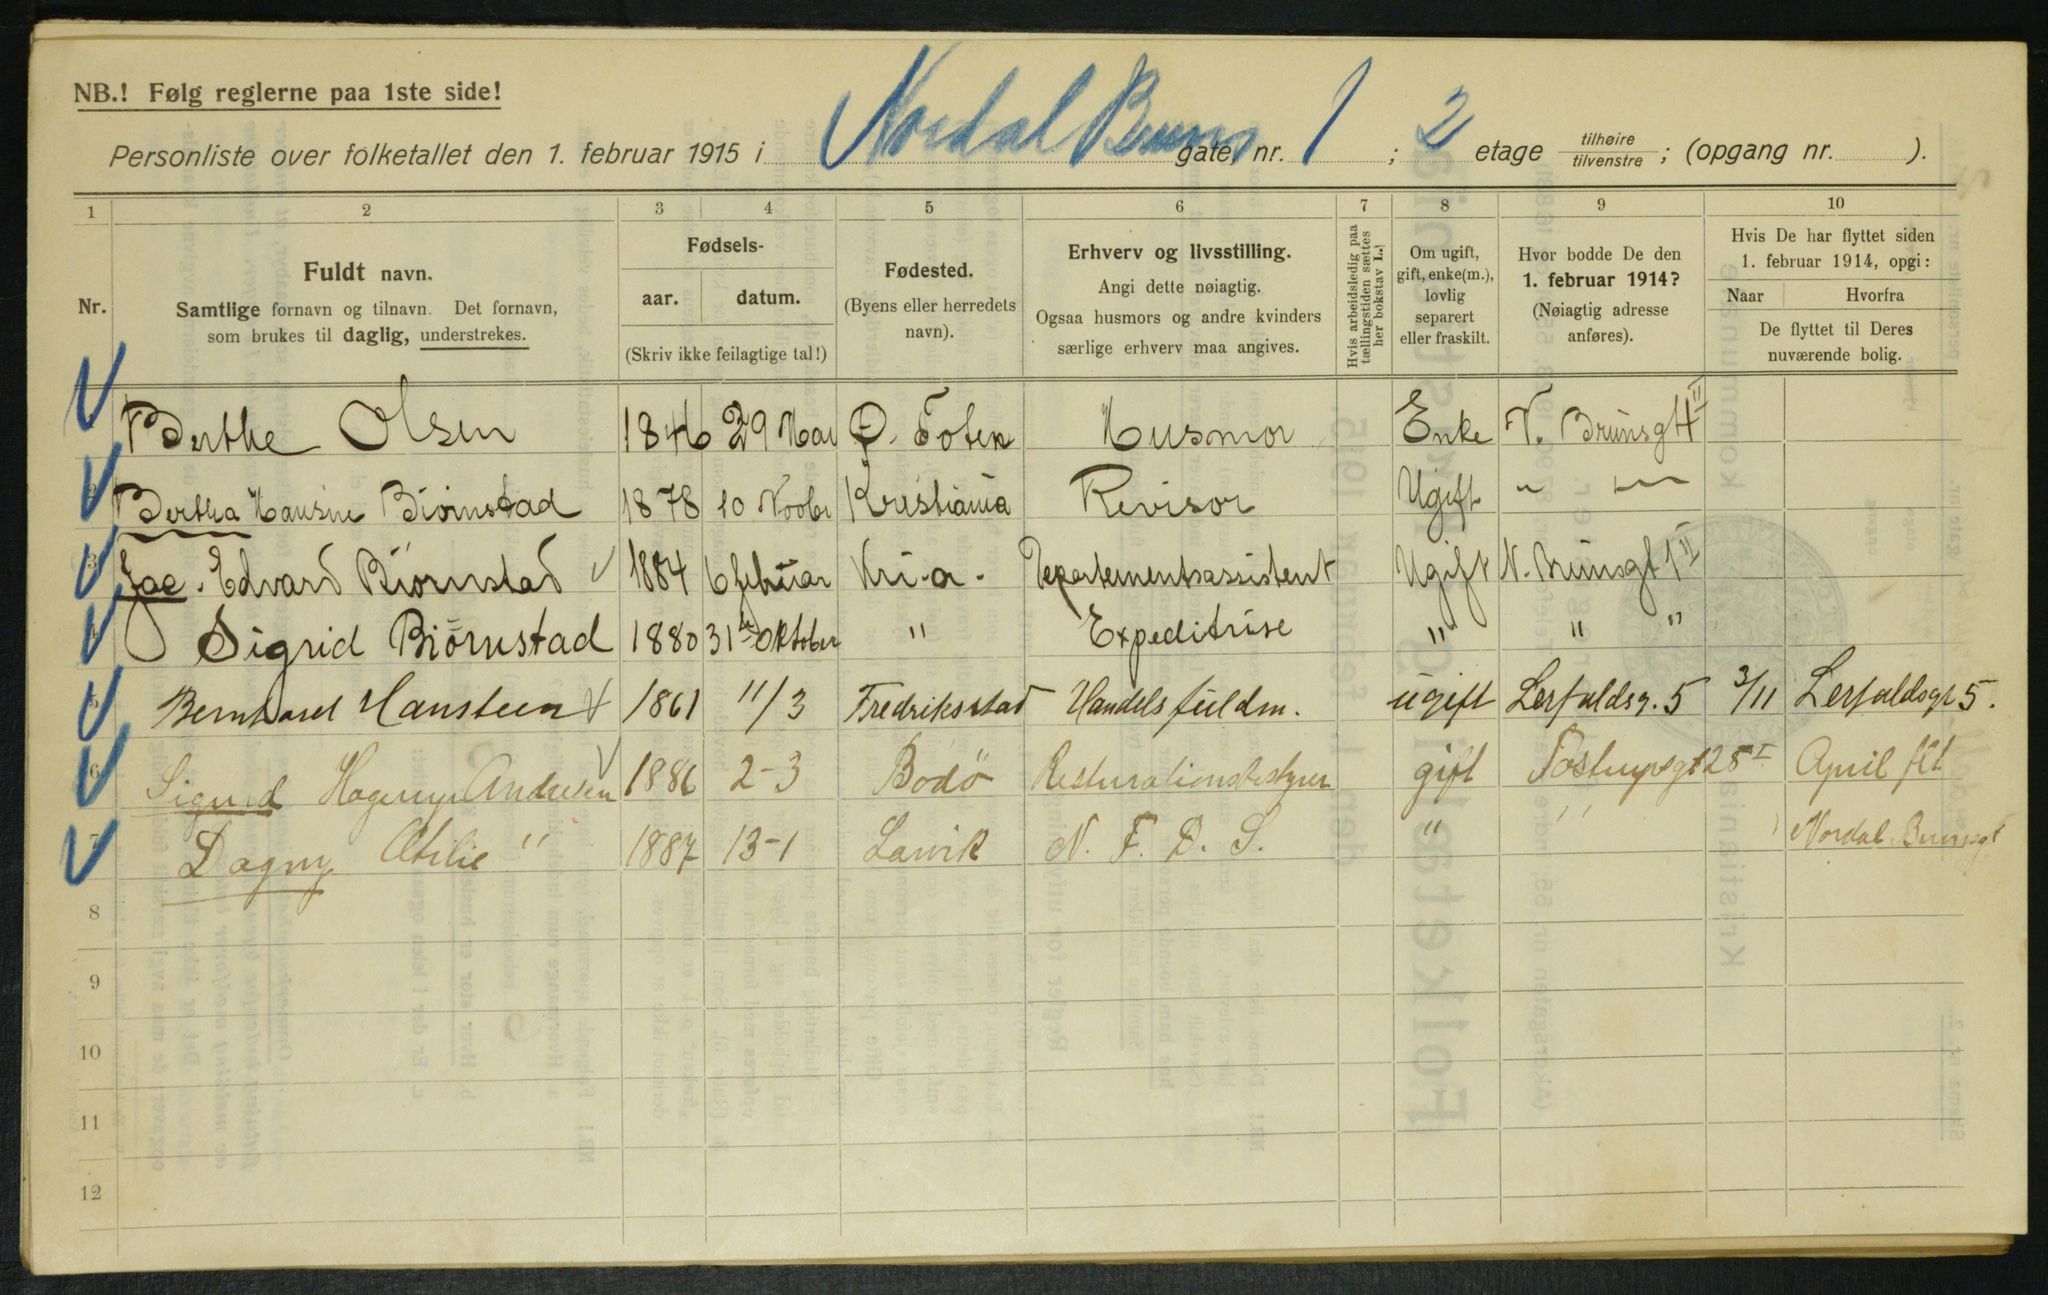 NB.! Følg reglerne paa 1ste side!
Personliste over folketallet den 1. februar 1915 i Nordal Bruns gate, nr. 1 ; 2 etage tilhøire tilvenstre ; (opgang nr. ).
1 2 3 4 5 6 7 8 9 10
Nr.
Fuldt navn.
Samtlige fornavn og tilnavn. Det fornavn, som brukes til daglig, understrekes.
Fødsels-
aar. datum.
(Skriv ikke feilagtige tal!)
Fødested.
(Byens eller herredets navn).
Erhverv og livsstilling.
Angi dette nøiagtig.
Ogsaa husmors og andre kvinders særlige erhverv maa angives.
Hvis arbeidsledig paa tællingstiden sættes her bokstav L.
Om ugift, gift, enke(m.), lovlig separert eller fraskilt.
Hvor bodde De den 1. februar 1914?
(Nøiagtig adresse anføres).
Hvis De har flyttet siden 1. februar 1914, opgi:
Naar Hvorfra
De flyttet til Deres nuværende bolig.
Berthe Olsen 1846 29 Mai Ø. Toten Husmor Enke N. Brunsgt 1 II
2 Bertha Hansine Biørnstad 1878 10 Novbr Kristiania Revisor Ugift " "
3 Jac. Edvard Biørnstad 1884 6 februar Kri-a. Departementsassistent Ugift N. Brunsgt 1 II
4 Sigrid Biørnstad 1880 31te Oktober " Expeditrise " " "
5 Bernhard Hansteen 1861 11/3 Fredriksstad Handelsfuldm. ugift Lerfaldsg. 5 3/11 Lerfaldsgt 5.
6 Sigurd Hagerup Andresen 1886 2-3 Bodö Resturationsbestyrer gift Tostrupsgt 28 I April
7 Dagny Otilie " 1887 13-1 Larvik N. F. D. S. " " Nordal Brunsgt
8
9
10
11
12